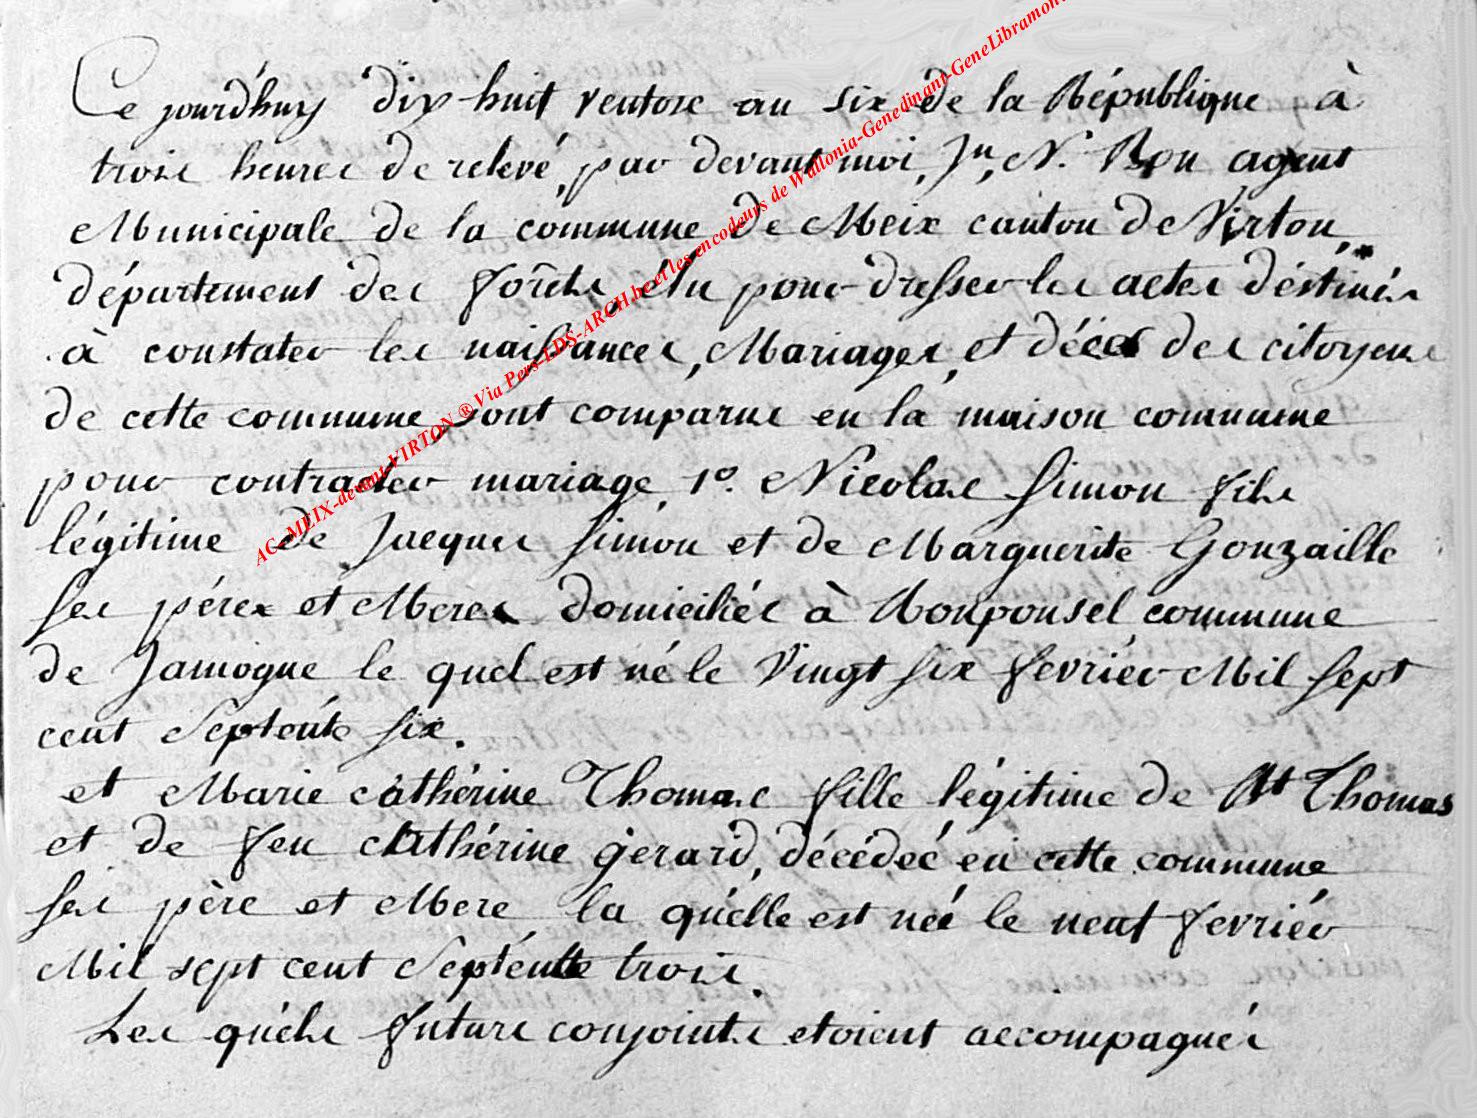 Ce jourdhuy dix huit ventose an six de la République à
trois heures de relevé, par devant moi, Jn, N. Ron agent
Municipale de la commune de Meix canton de Virton,
département des forêts, élu pour dresser les actes déstinés
à constater les naissances, Mariages, et décès des citoyens
de cette commune sont comparus en la maison commune
pour contracter mariage, 1o. Nicolas Simon fils
légitime de Jacques Simon et de Marguerite Gonzaille
ses pères et Meres domiciliés à commune
de Jamogne le quel est né le vingt six fevrier Mil sept
cent septente six.
et Marie cathérine Thomas fille légitime de Thomas
et de feu cathérine gerard, décédée en cette commune
ses père et Mere la quélle est née le neuf fevriér
Mil sept cent septente trois.
Les quéls futurs conjoints etoient accompagnés
AC-MEIX-devant-VIRTON ® Via Pers-LDS-ARCH.be et les encodeurs de Wallonia-Genedinant-GeneLibramon